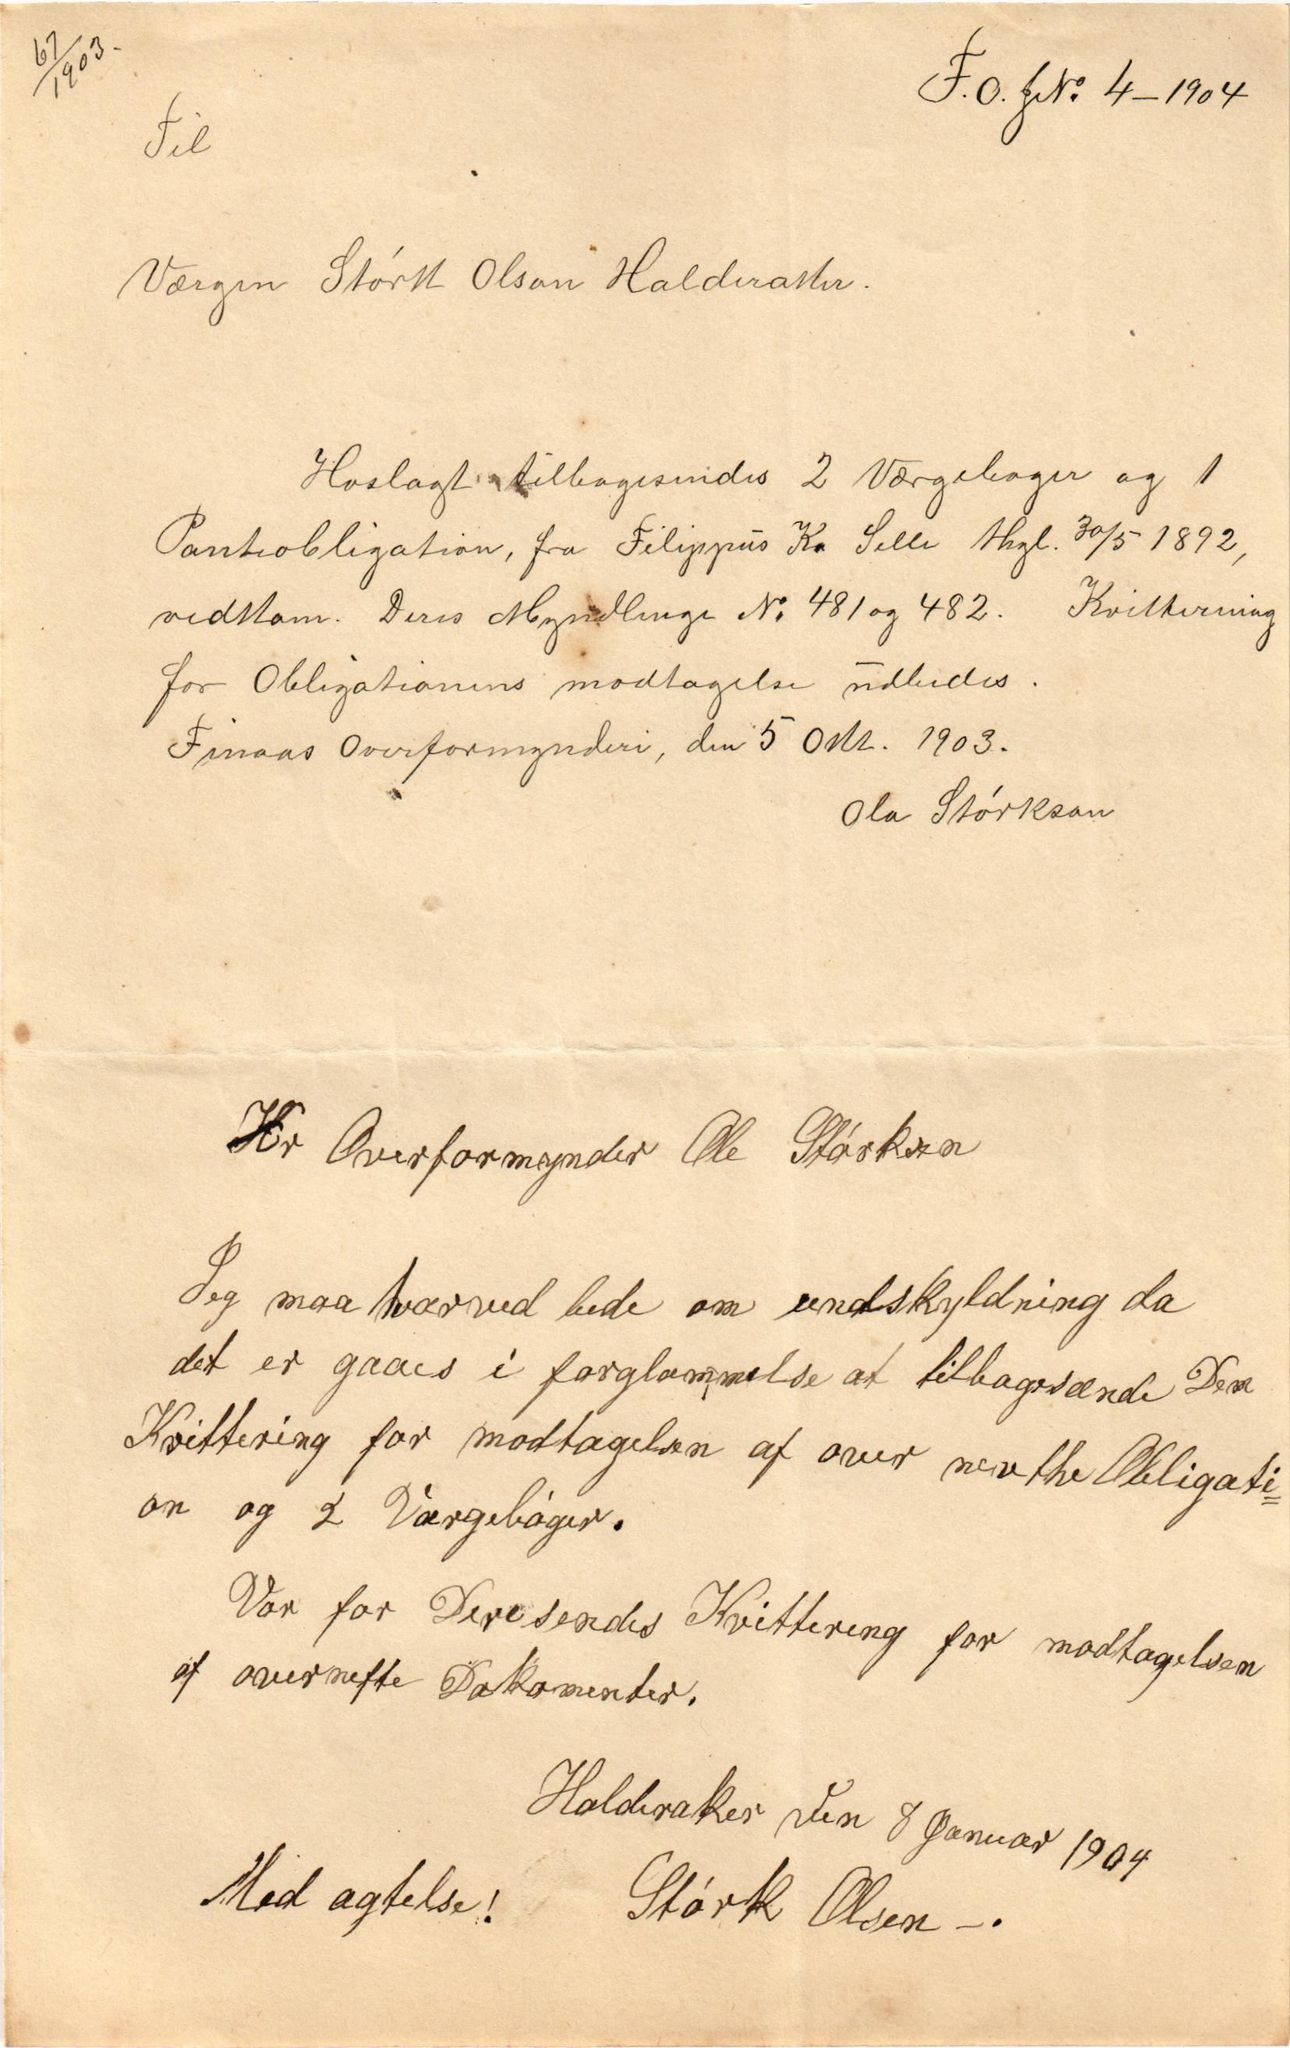 67/1903.
F.O. JNo. 4-1904
Til
Værgen Störk Olson Halderaker.
Hoslagt tilbagesendes 2 Værgebøger og 1
Panteobligation, fra Filippus K. Selle thgl. 30/5 1892,
vedkom. Deres Myndlinge No. 481 og 482. Kvittering
for Obligationens modtagelse üdbedes.
Finaas Overformynderi, den 5 Okt. 1903.
Ola Störkson
Hr Overformynder Ole Störksen
Jeg maa hærved bede om undskyldning da
det er gaaes i forglømmelse at tilbagesænde Den
Kvittering for modtagelsen af over nevthe Obligati=
on og 2 Værgebøger.
Vor for Dere sendes Kvittering for modtagelsen
af overnefte Dokomenter.
Halderaker den 8 Januar 1904
Med agtelse! Störk Olsen -.